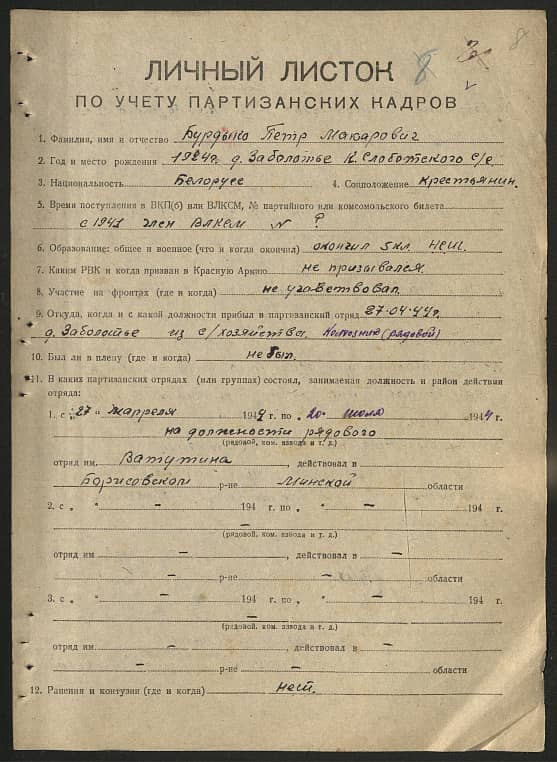 8
ЛИЧНЫЙ ЛИСТОК
ПО УЧЕТУ ПАРТИЗАНСКИХ КАДРОВ
1. Фамилия, имя и отчество Бурдыко Петр Макарович
2. Год и место рождения 1924г. д. Заболотье К. Слоботского с/с
3. Национальность Белорусс 4. Соцположение Крестьянин.
5. Время поступления в ВКП(б) или ВЛКСМ, № партийного или комсомольского билета
с 1941 член ВЛКСМ № ?
6. Образование: общее и военное (что и когда окончил) окончил 5 кл. НСШ.
7. Каким РВК и когда призван в Красную Армию не призывался.
8. Участие на фронтах (где и когда) не участвовал.
9. Откуда, когда и с какой должности прибыл в партизанский отряд 27-04-44г.
д. Заболотье из с/хозяйства. Колхозник (рядовой)
10. Был ли в плену (где и когда) не был.
11. В каких партизанских отрядах (или группах) состоял, занимаемая должность и район действия
отряда:
1. с „27 “ 1944 г. по „20 “ июля 1944 г.
на должности рядового
(рядовой, ком. взвода и т. д.)
отряд им. Ватутина, действовал в
Борисовском р-не Минской области
2. с „ “ – 194 г. по „ “ – 194 г.
–
(рядовой, ком. взвода и т. д.)
отряд им – , действовал в –
– р-не – области
3. с „ “ – 194 г. по „ “ – 194 г.
–
(рядовой, ком. взвода и т. д.)
отряд им – , действовал в –
– р-не – области
12. Ранения и контузии (где и когда) нет.